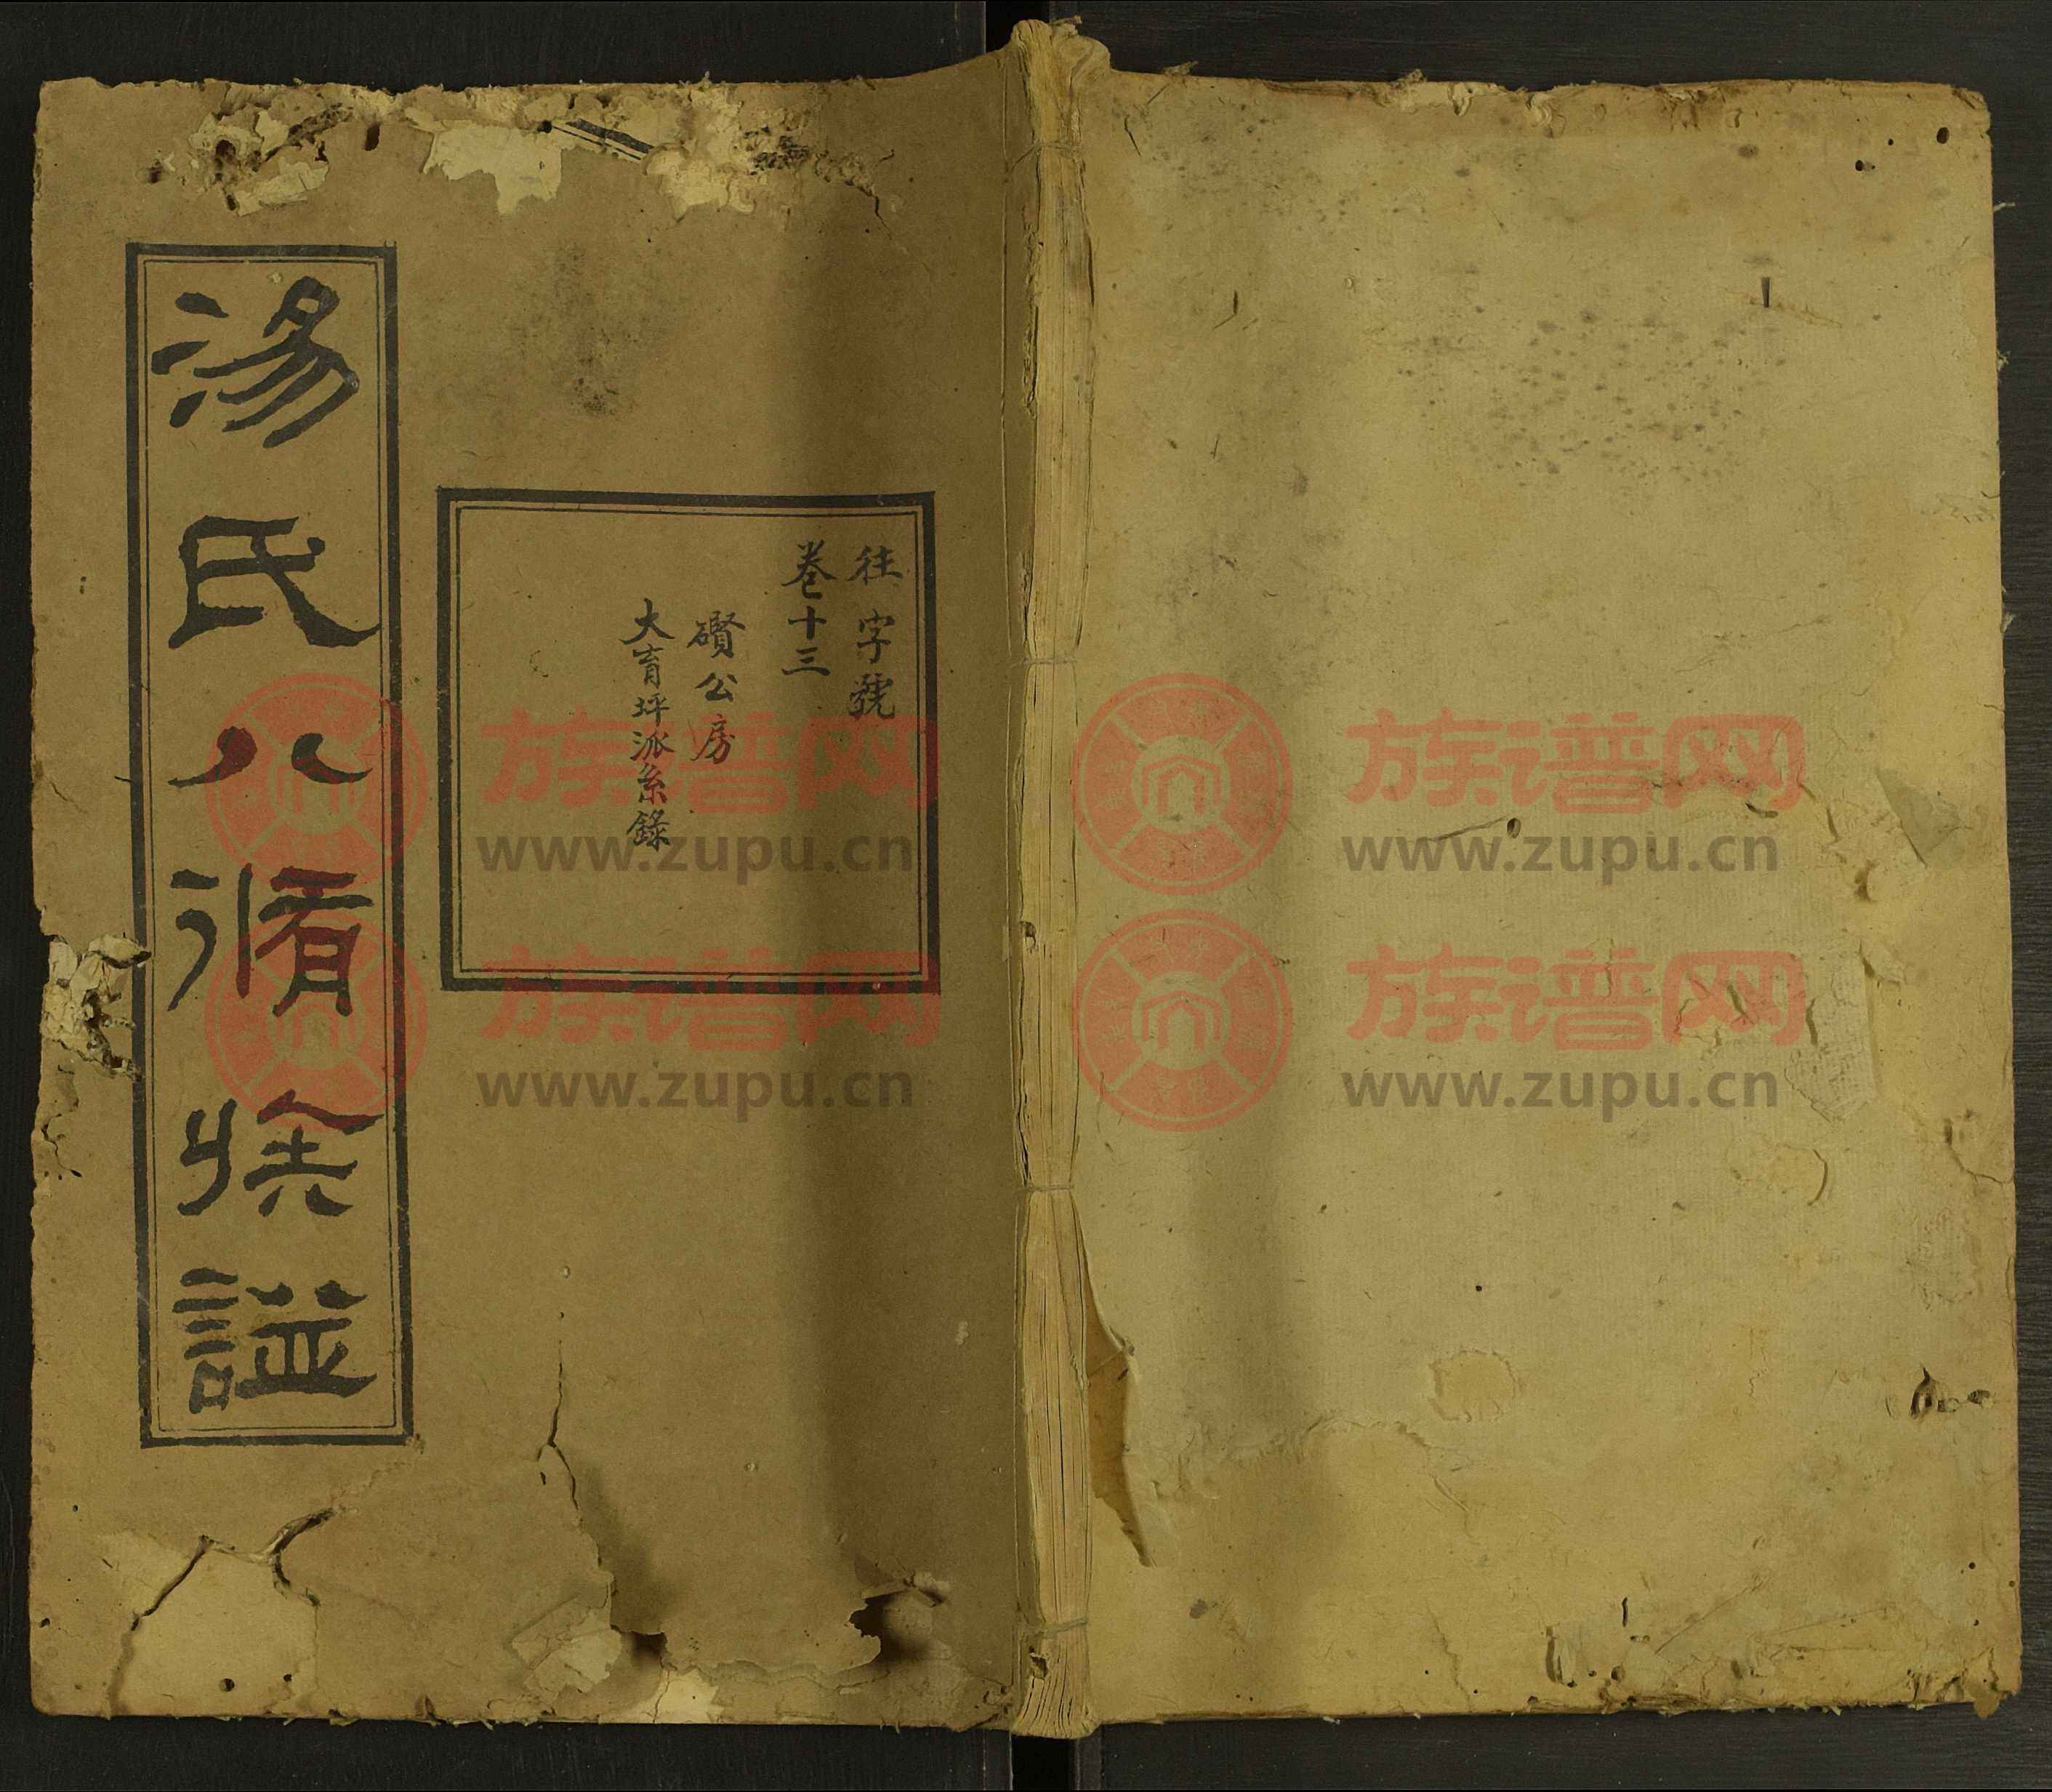 湯氏八脩族譜
往字號
卷十三
礥公房
大育坪派系錄
族谱网 族谱网
www.zupu.cn www.zupu.cn
族谱网 族谱网
www.zupu.cn www.zupu.cn